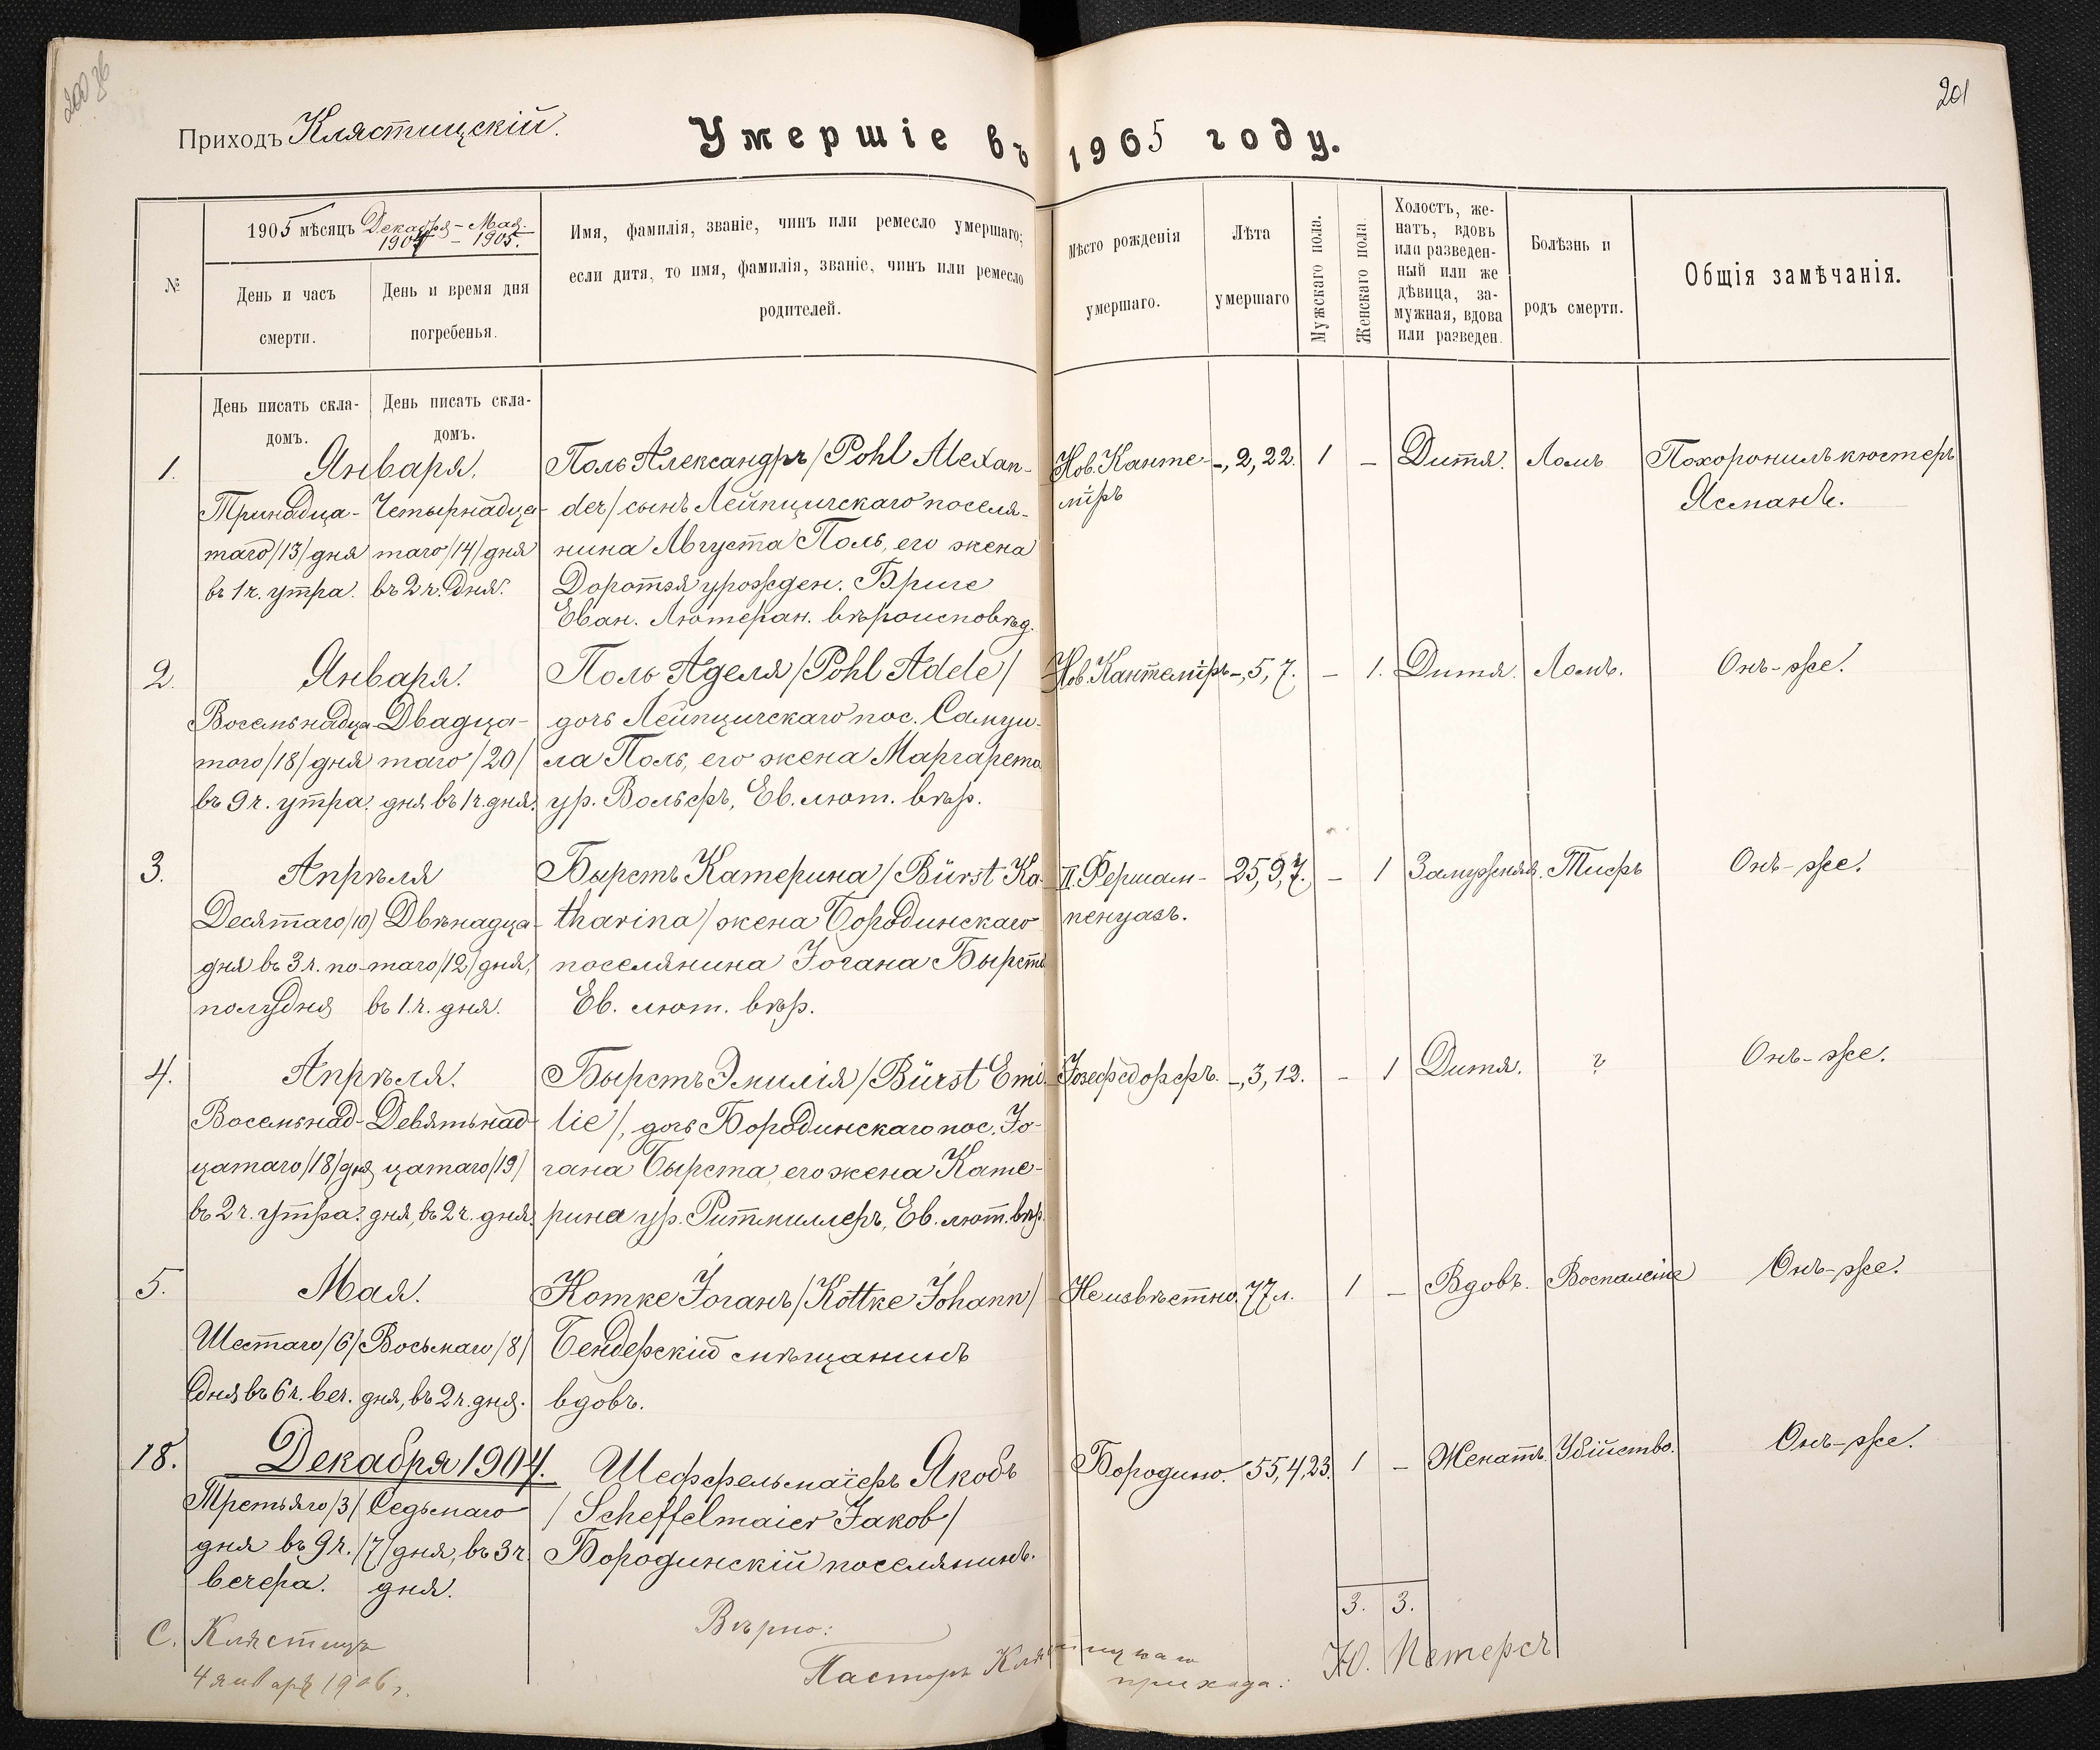 200 об
201
Приходъ Клястицскій.
Умершіе въ 1905 году.
№
1905 мѣсяцъ Декабря - Мая.
1904 - 1905.
День и часъ
смерти.
День и время дня
погребенья.
Имя, фамилія, званіе, чинъ или ремесло умершаго;
если дитя, то имя, фамилія, званіе, чинъ или ремесло
родителей.
Мѣсто рожденія
умершаго.
Лѣта
умершаго
Мужскаго пола.
Женскаго пола
Холостъ, же-
натъ, вдовъ
или разведен-
ный или же
дѣвица, за-
мужная, вдова
или разведен.
Болѣзнь и
родъ смерти.
Общія замѣчанія.
День писать скла-
домъ.
День писать скла-
домъ.
1.
Января.
Тринадца-
таго /13/ дня
въ 1 ч. утра.
Четырнадца-
таго /14/ дня
въ 2 ч. дня.
Поль Александръ /Pohl Alexan-
der/ сынъ Лейпцигскаго поселя-
нина Августа Поль, его жена
Доротэя урожден. Бриге
Еван. Лютеран. вѣроисповѣд.
Нов. Канте-
міръ
-, 2, 22.
1
-
Дитя.
Ломъ
Похоронилъ кюстеръ
Ясманъ.
2.
Января.
Восемьнадца
того /18/ дня
въ 9 ч. утра.
Двадца-
таго /20/
дня въ 1 ч. дня.
Поль Аделя /Pohl Adele/
дочь Лейпцигскаго пос. Самуи-
ла Поль, его жена Маргарета
ур. Вольфъ, Ев. лют. вѣр.
Нов. Кантеміръ
-, 5, 7.
-
1.
Дитя.
Ломъ.
Онъ-же.
3.
Апрѣля
Десятаго /10/
дня въ 3 ч. по-
полудня
Двѣнадца-
таго /12/ дня,
въ 1 ч. дня.
Бырстъ Катерина /Bürst Ka-
tharina/ жена Бородинскаго
поселянина Іогана Бырстъ
Ев. лют. вѣр.
II. Фершам-
пенуазъ.
25, 9, 7.
-
1
Замужняя.
Тифъ
Онъ-же.
4.
Апрѣля.
Восемьнад-
цатаго /18/ дня
въ 2 ч. утра.
Девятьнад-
цатаго /19/
дня, въ 2 ч. дня.
Бырстъ Эмилія /Bürst Emi-
lie/, дочь Бородинскаго пос. Іо-
гана Бырста, его жена Кате-
рина ур. Ритмиллеръ, Ев. лют. вѣр.
Іозефсдорфъ.
-, 3, 12.
-
1
Дитя.
?
Онъ-же.
5.
Мая.
Шестаго /6/
дня въ 6 ч. веч.
Восьмаго /8/
дня, въ 2 ч. дня.
Котке Іоганъ /Kottke Johann/
Бендерскій мѣщанинъ
вдовъ.
Неизвѣстно.
77 л.
1
-
Вдовъ.
Воспаленіе
Онъ-же.
18.
Декабря 1904.
Третьяго /3/
дня въ 9 ч.
вечера.
Седьмаго
/7/ дня, въ 3 ч.
дня.
Шеффельмаіеръ Якобъ
/Scheffelmaier Jakob/
Бородинскій поселянинъ.
Бородино.
55, 4, 23.
1
-
Женатъ.
Убійство.
Онъ-же.
3.
3.
С. Клястицъ
4 января 1906 г.
Вѣрно:
Пасторъ Клястицкаго
прихода: Ю. Петерсъ